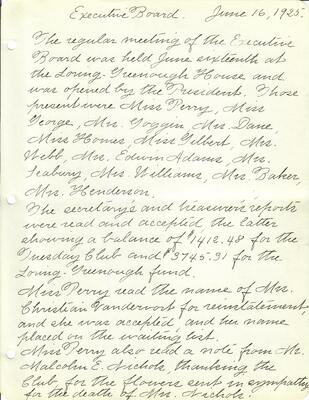 Executive Board. June 16, 1925.
The regular meeting of the Executive
Board was held June sixteenth at
the Loring-Greenough House and
was opened by the President. Those
present were Miss Perry, Miss
George, Mrs. Goggin, Mrs. Dane,
Miss Homes, Miss Gilbert, Mrs.
Webb, Mrs. Edwin Adams, Mrs.
Seabury, Mrs. Williams, Mrs. Baker,
Mrs. Henderson.
The secretary's and treasurer's reports
were read and accepted, the latter
showing a balance of $1412.48 for the
Tuesday Club and $3745.31 for the
Loring-Greenough fund.
Miss Perry read the name of Mrs.
Christian Vandervort for reinstatement,
and she was accepted, and her name
placed on the waiting list.
Miss Perry also read a note from Mr.
Malcolm E. Nichols, thanking the
Club, for the flowers sent in sympathy
for the death of Mrs. Nichols.